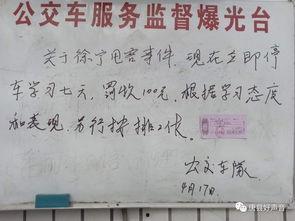 公交车服务监督爆光台
关于徐宁甩客事件，现在立即停
车学习七天，罚收100元，根据学习态度
和表现，另行按排工作。
公交车队
9月17日
唐县好声音